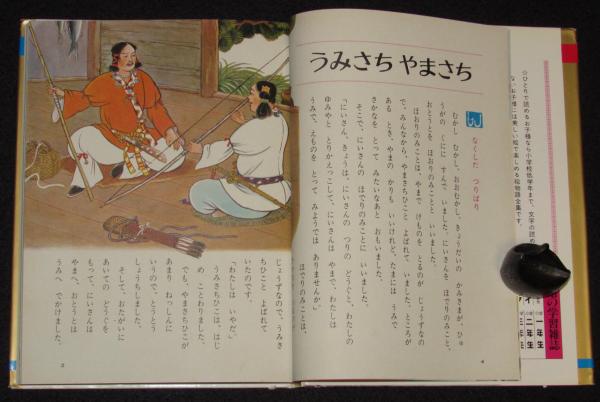 うみさち やまさち
なくした つりばり
むかし むかし、おおむかし、きょうだいの かみさまが、ひゅ
うがの くにに すんで いました。にいさんを ほでりのみこと、
おとうとを ほおりのみことと いいました。
ほおりのみことは、やまで けものを とるのが じょうずなの
で、みんなから、やまさちひこと よばれて いました。ところが
ある とき、やまの かりも いいけれど、たまには うみで
さかなを とって みたいなあと おもいました。
そこで、にいさんの ほでりのみことに いいました。
「にいさん、きょうは、にいさんの つりの どうぐと、わたしの
ゆみやと とりかえっこして、にいさんは やまで、わたしは
うみで、えものを とって みようでは ありませんか。」
ほでりのみことは、
じょうずなので、うみさ
ちひこと よばれて
いたのです。
「わたしは いやだ。」
うみさちひこは、はじ
め ことわりました。
でも、やまさちひこが
あまり ねっしんに
いうので、とうとう
しょうちしました。
そして、おたがいに
あいての どうぐを
もって、にいさんは
やまへ、おとうとは
うみへ でかけました。
4
☆ひとりで読めるお子様なら小学校低学年まで、文字の読め
な
お子様には美しい絵で楽しめる絵物語全集です。
の学習雑誌
一年生
二年生
三年生